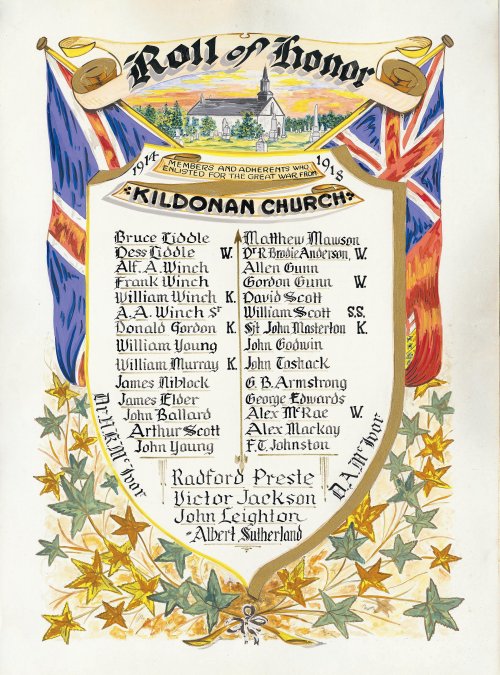 Roll of Honor
1914
1918
MEMBERS AND ADHERENTS WHO
ENLISTED FOR THE GREAT WAR FROM
KILDONAN CHURCH
Bruce Liddle
Dess Liddle W.
Alf. A. Winch
Frank Winch
William Winch K.
A.A. Winch Sr
Donald Gordon K.
William Young
William Murray K.
James Niblock
James Elder
John Ballard
Arthur Scott
John Young
Matthew Mawson
Dr R. Brodie Anderson, W.
Allen Gunn
Gordon Gunn W.
David Scott
William Scott S.S.
Sgt John Masterton K.
John Godwin
John Tashack
G. B. Armstrong
George Edwards
Alex McRae W.
Alex Mackay
F.T. Johnston
Radford Preste
Victor Jackson
John Leighton
Albert Sutherland
Dr. H.K. McIvor
D.A. McIvor